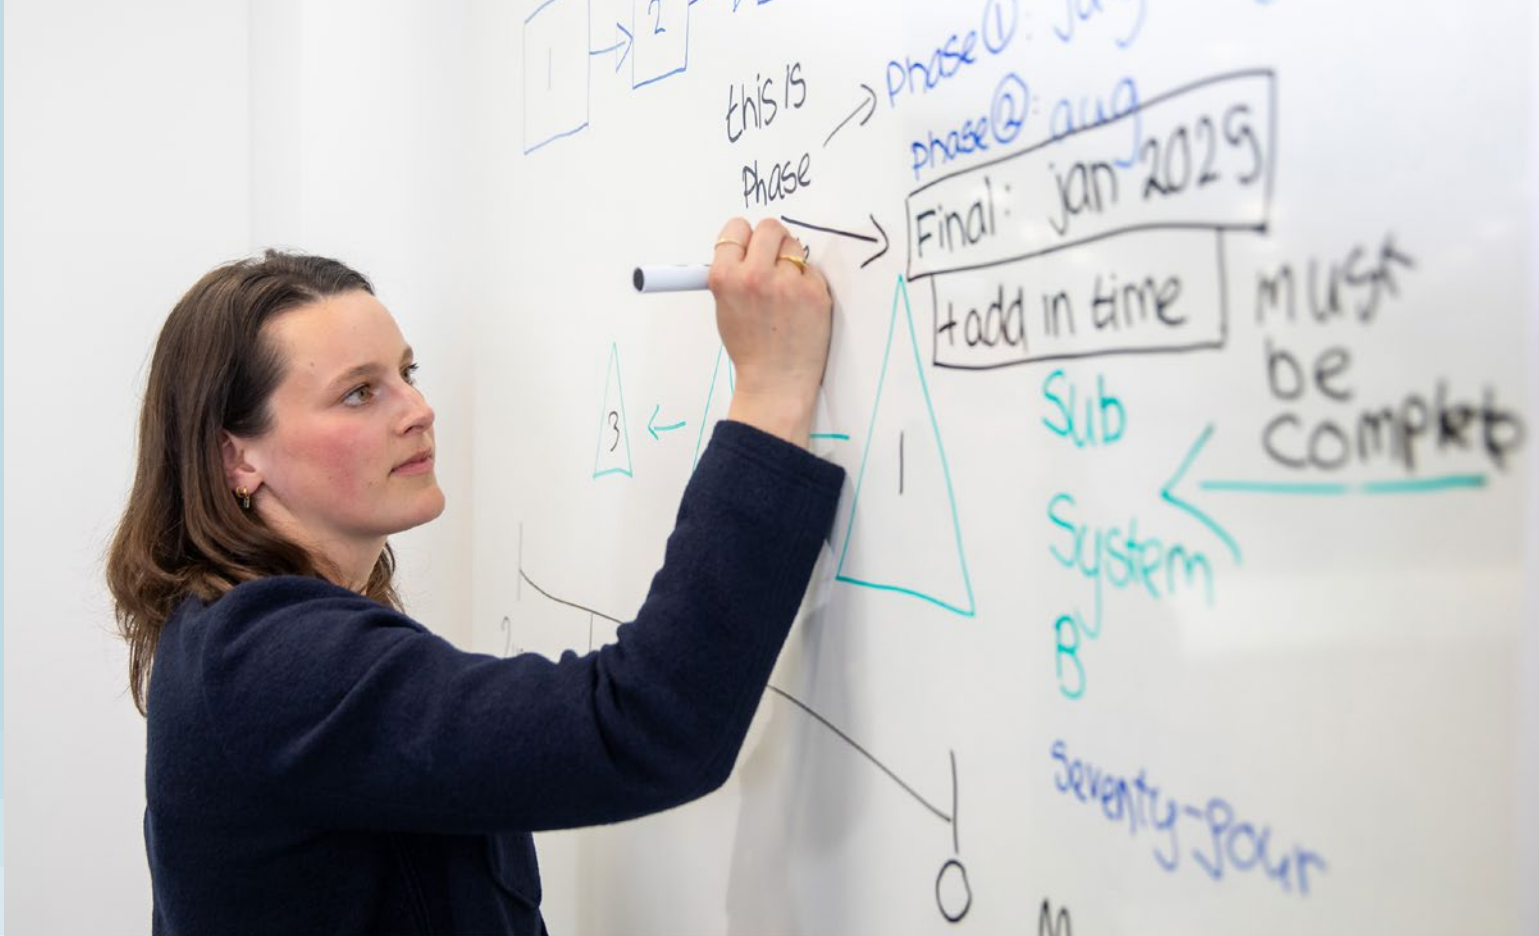 1
2
this is
Phase
Phase ①:
Phase ②: aug
Final: jan 2029
+add in time
must
be
complete
3
1
Sub
System
B
seventy-four
0